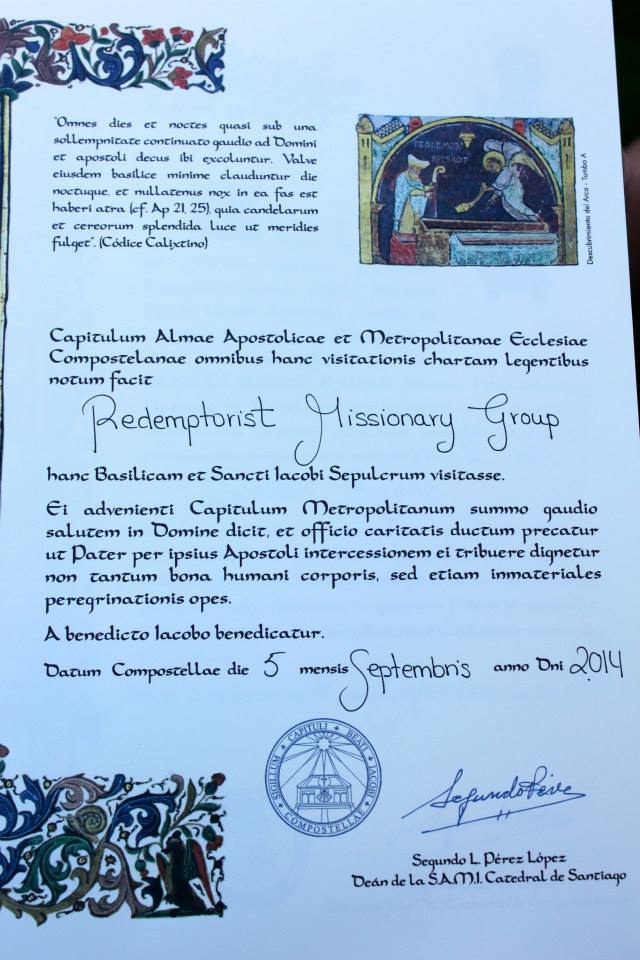 "Omnes dies et noctes quasi sub una
sollempnitate continuato gaudio ad Domini
et apostoli decus ibi excoluntur. Valve
eiusdem basilice minime clauduntur die
noctuque, et nullatenus nox in ea fas est
haberi atra (cf. Ap 21, 25), quia candelarum
et cereorum splendida luce ut meridies
fulget". (Códice Calixtino)
TEODEMIRUS
EPISCOP
Descubrimiento del Arca - Tumbo A
Capitulum Almae Apostolicae et Metropolitanae Ecclesiae
Compostelanae omnibus hanc visitationis chartam legentibus
notum facit
Redemptorist Missionary Group
hanc Basilicam et Sancti Iacobi Sepulcrum visitasse.
Ei advenienti Capitulum Metropolitanum summo gaudio
salutem in Domine dicit, et officio caritatis ductum precatur
ut Pater per ipsius Apostoli intercessionem ei tribuere dignetur
non tantum bona humani corporis, sed etiam inmateriales
peregrinationis opes.
A benedicto Iacobo benedicatur.
Datum Compostellae die 5 mensis Septembris anno Dni 2014
SIGILLUM + CAPITULI + BEATI + JACOBI + COMPOSTELLAE +
Segundo Pérez
Segundo L. Pérez López
Deán de la S.A.M.I. Catedral de Santiago